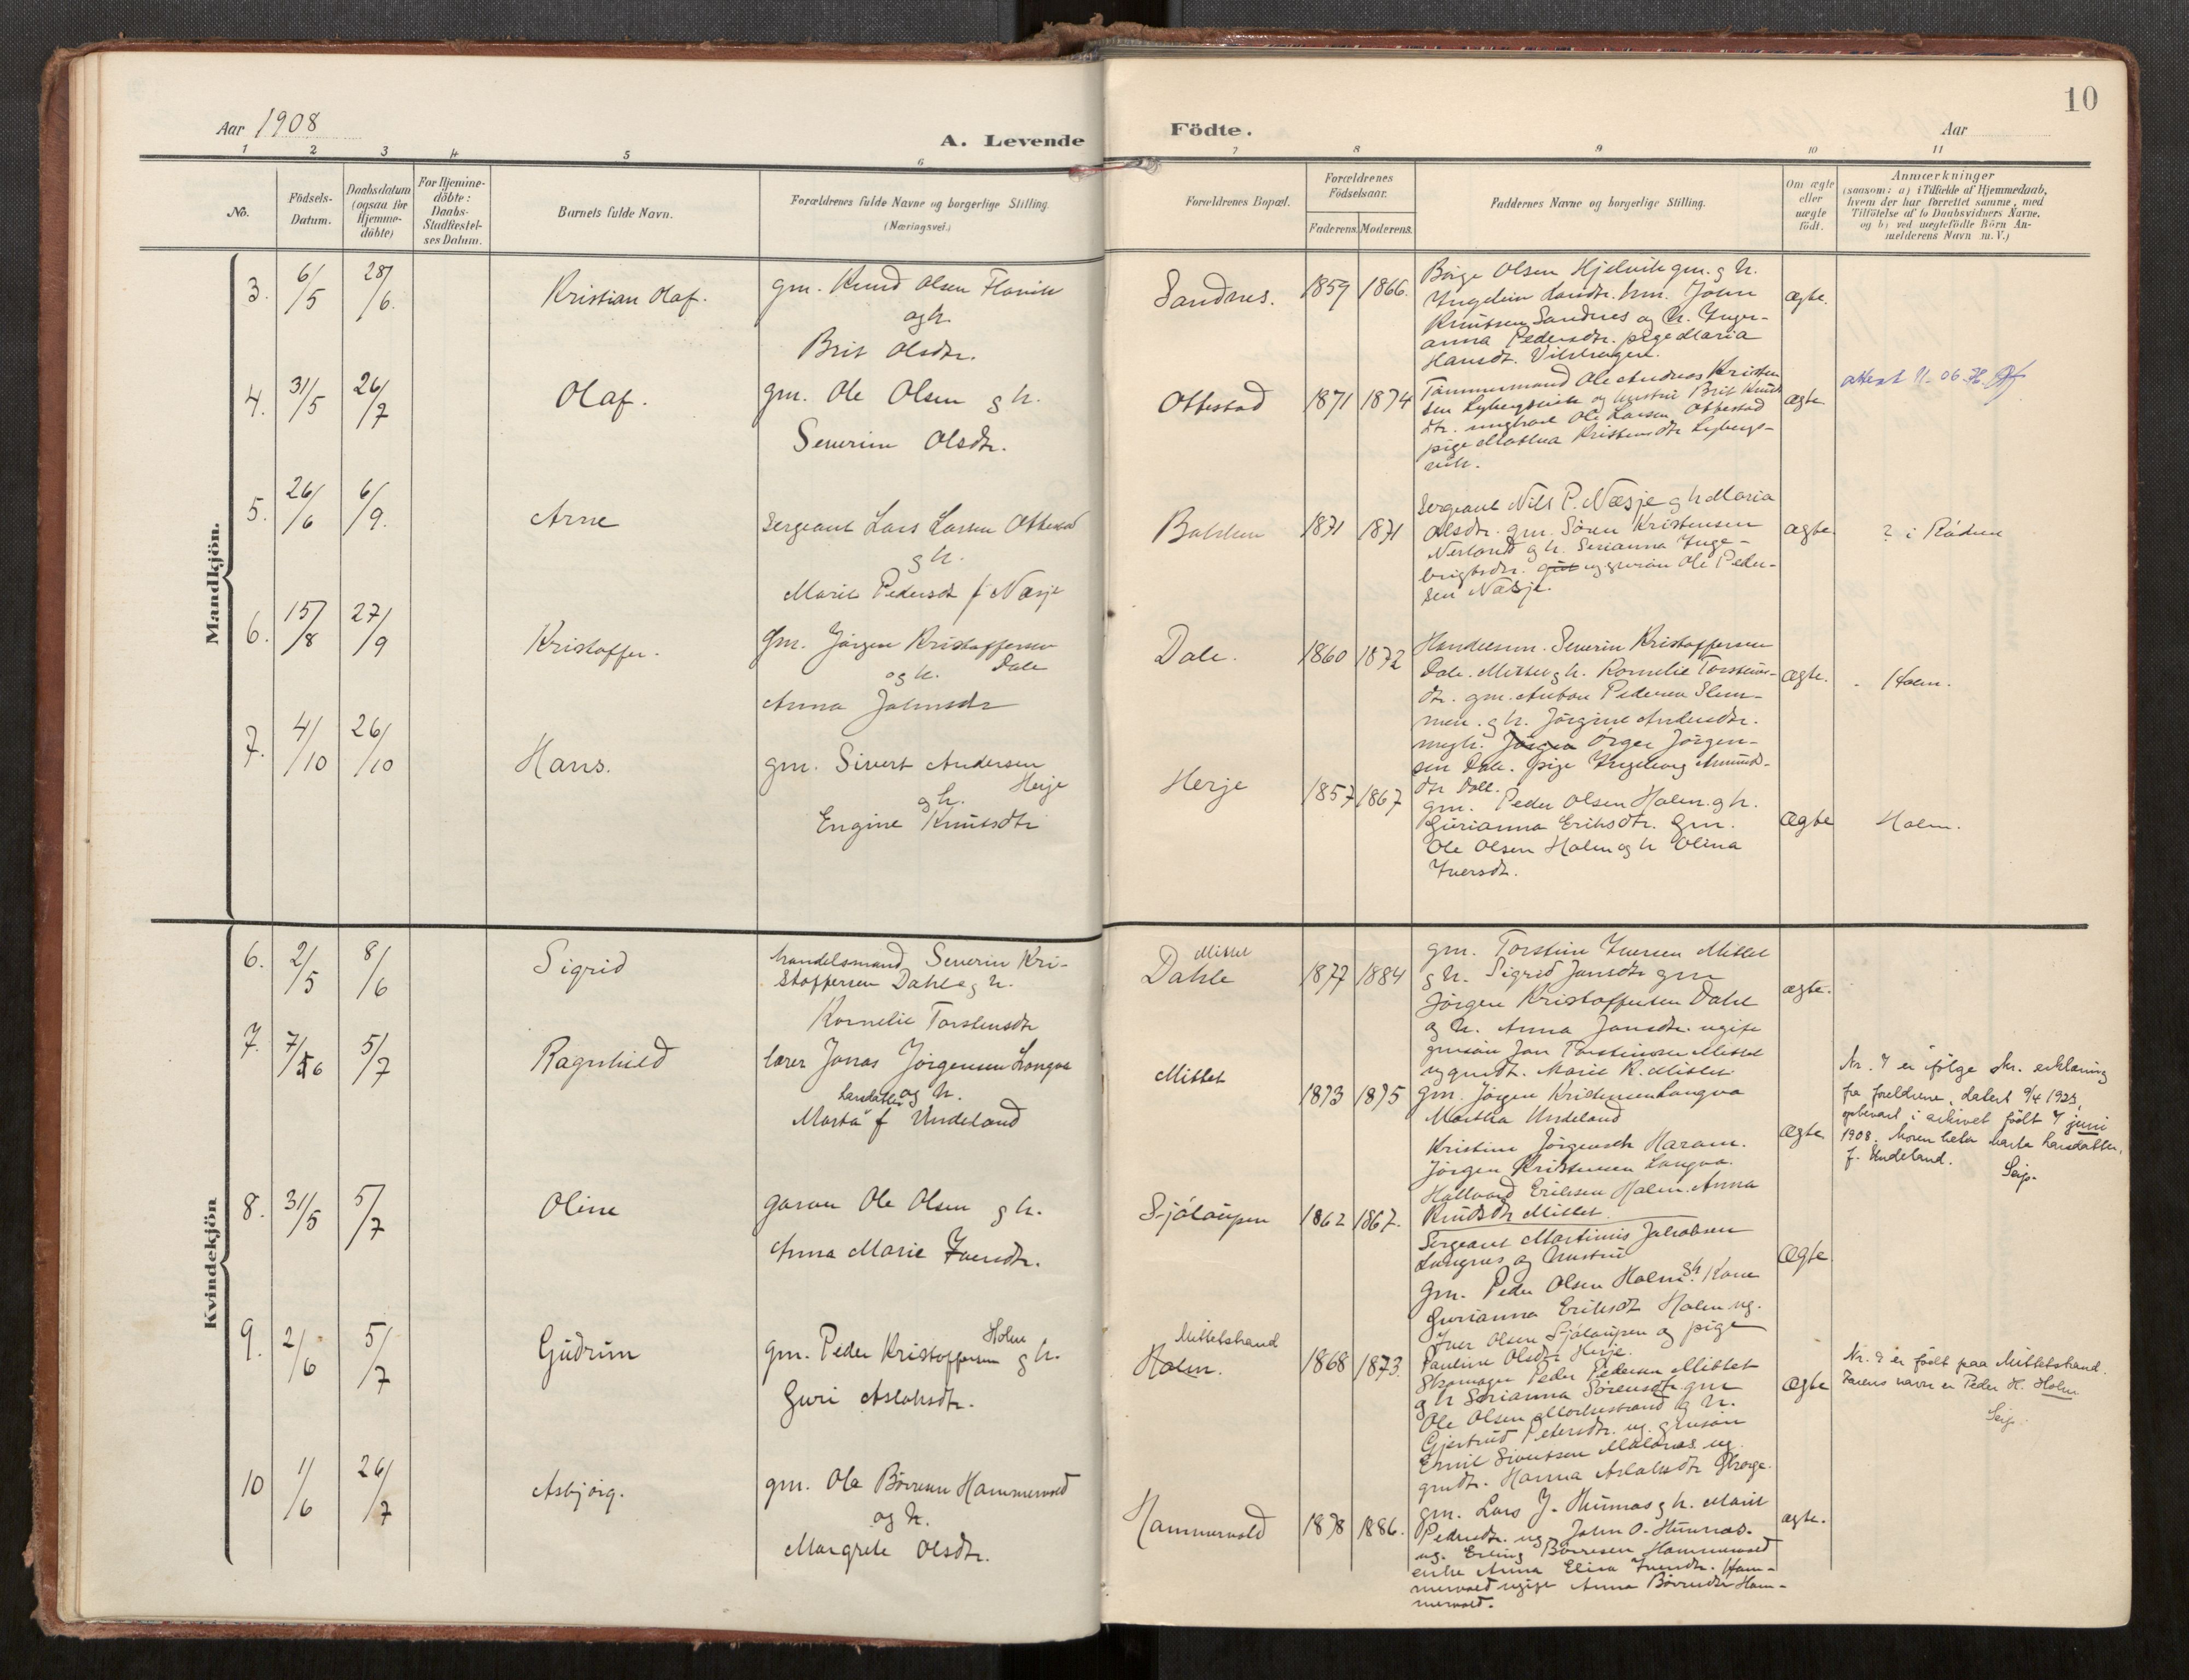 10
Aar 1908
A. Levende Födte.
Aar
1 2 3 4 5 6 7 8 9 10 11
No.
Födsels-
Datum.
Daabsdatum
(ogsaa for
Hjemme-
döbte)
For Hjemme-
döbte:
Daabs-
Stadfæstel-
ses Datum.
Barnets fulde Navn.
Forældrenes fulde Navne og borgerlige Stilling.
(Næringsvei.)
Forældrenes Bopæl.
Forældrenes
Födselsaar.
Faderens. Moderens.
Faddernes Navne og borgerlige Stilling.
Om ægte
eller
uægte
födt.
Anmærkninger
(saasom: a) i Tilfælde af Hjemmedaab,
hvem der har forrettet samme, med
Tilföielse af to Daabsvidners Navne.
og b) ved uægtefödte Börn An-
melderens Navn m. V.)
Mandkjön.
3. 6/5 28/6. Kristian Olaf.
gm. Knud Olsen Flovik
og h.
Brit Olsdtr.
Sandnes. 1859 1866.
Börge Olsen Hjelvik gm. g h.
Ingeleiv Larsdtr. hm. John
Knutsen Sandnes og h. Inger-
anna Pedersdtr. pige Maria
Hansdt.
ægte.
4. 31/5 26/7 Olaf.
gm. Ole Olsen g h.
Severine Olsdtr.
Ottestad 1871 1874
Tømmermand Ole Andreas Kristen
sen og hustru Brit Knuts
dtr. ungkarl Ole Larsen Ottestad
pige Mathea Kristensdtr Lybergs-
vik.
ægte
attest
5. 26/6 6/9. Arne
Sergeant Lars Larsen Ottestad
g h.
Marie Pedersdt f Næsje
1871 1871
Sergeant Nils P. Næsje g h Maria
Olsdtr. gm. Sören Kristensen
Nerland g h. Serianna Inge-
brigtsdtr. og ggmsön Ole Peder-
sen Næsje.
ægte.
? i Råden
6. 15/8 27/9 Kristoffer.
Gm. Jörgen Kristoffersen
og h. Dale
Anna Johnsdtr
Dale. 1860 1872
Handelsm. Severin Kristoffersen
Dale. Mittet g h. Kornelie Torsteins-
dtr. gm. Anton Pedersen Slem-
men. g h. Jörgine Andersdtr.
ungk. Örger Jörgen-
sen Dale. pige Ingeborg Amunds-
dtr Dale.
ægte.
Holm.
7. 4/10 26/10 Hans.
gm. Sivert Andersen
g h. Herje
Engine Knutsdtr
Herje 1857 1867
gm. Peder Olsen Holm. g h.
Gurianna Eriksdtr. gm.
Ole Olsen Holm og h Olina
Iversdt.
ægte
Holm.
Kvindekjön
6. 2/5 8/6 Sigrid
handelsmand Severin Kri-
stoffersen Dahle g h.
Kornelie Torstensdtr
Mittet
Dahle 1877 1884
gm. Torstein Iversen Mittet
g h. Sigrid Jansdtr gm
Jörgen Kristoffersen Dale
og h. Anna Jonsdtr. ugift
gmsön Jon Torsteinsen Mittet
ug gmdt. Marie K. Mittet
ægte.
7. 7/6 5/7 Ragnhild
lærer Jonas Jörgensen Longva
Larsdatter og h.
Marta f Undeland
Mittet 1873 1875
gm. Jörgen Kristensen Longva
Martha Undeland
Kristine Jörgensdtr Haram.
Jörgen Kristensen Longva.
Hallvard Eriksen Holm. Anna
Knutsdtr Mittet.
Ægte
Nr. 7 er ifölge skr. erklæring
fra foreldrene, datert 9/4 1923,
opbevart i arkivet födt 7 juni
1908. Moren heter Marta Larsdatter,
f. Undeland.
Seip.
8. 31/5 5/7 Oline
garver Ole Olsen g h.
Anna Marie Iversdtr.
Sjölaupen 1862 1867.
Sergeant Martinus Jakobsen
Langnes og hustru
gm. Peder Olsen Holm g h. Kone
Gurianna Eriksdt Holm ug.
Iver Olsen Sjölaupen og pige
Pauline Olsdtr Herje.
Ægte
9. 2/6 5/7 Gudrun
gm. Peder Kristoffersen Holm g h.
Guri Aslaksdtr.
Mittetstrand
Holm. 1868 1873.
Skomager Peder Pedersen Mittet
g h Serianna Sörensdtr. gm
Ole Olsen Morkestrand g h.
Gjertrud Petersdtr. ug. gmsön
Emil Sivertsen Maldnes ug.
gmdt. Hanna Aslaksdtr
ægte
Nr. 9 er födt paa Mittetstrand.
Farens navn er Peder K. Holm
Seip.
10 1/6 26/7 Asbjörg.
gm. Ole Börresen Hammervold
og h.
Margrete Olsdtr.
Hammervold 1878 1886.
gm. Lars J. Hunnes g h. Marit
Pedersdtr. ug John O. Hunnes.
ug. Erling Börresen Hammervold
enke Anna Elisa Iversdtr. Ham-
mervold ugigt Anna Börresdtr Ham-
mervold.
ægte.